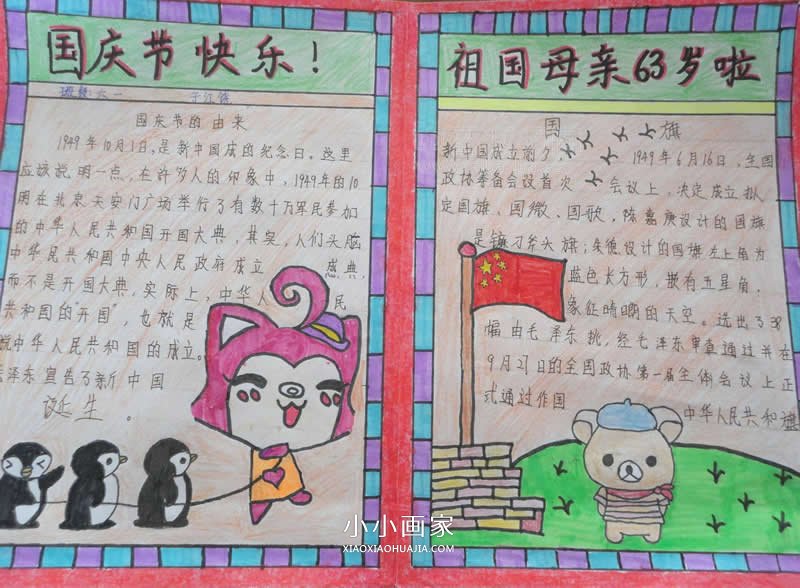 国庆节快乐！
班级：六一
国庆节的由来
1949年10月1日，是新中国成的纪念日。这里
应该说明一点，在许多人的印象中，1949年的10
明在北京天安门广场举行了有数十万军民参加
的中华人民共和国开国大典，其实，人们头脑
中华民共和国中央人民政府成立 盛典，
而不是开国大典，实际上，中华人 民
共和国的"开国"，也就是
说中华人民共和国的成立。
毛泽东宣告了新中国
诞生。
祖国母亲63岁啦
国旗
新中国成立前夕， 1949年6月16日，全国
政协筹备会议首次 会议上，决定成立拟
定国旗、国徽、国歌，陈嘉庚设计的国旗
是镰刀斧头旗；朱德设计的国旗左上角为
蓝色长方形，嵌有五星角，
象征晴朗的天空。选出了38
幅由毛泽东挑，经毛泽东审查通过并在
9月21日的全国政协第一届全体会议上正
式通过作国
中华人民共和旗
小小画家
XIAOXIAOHUAJIA.COM